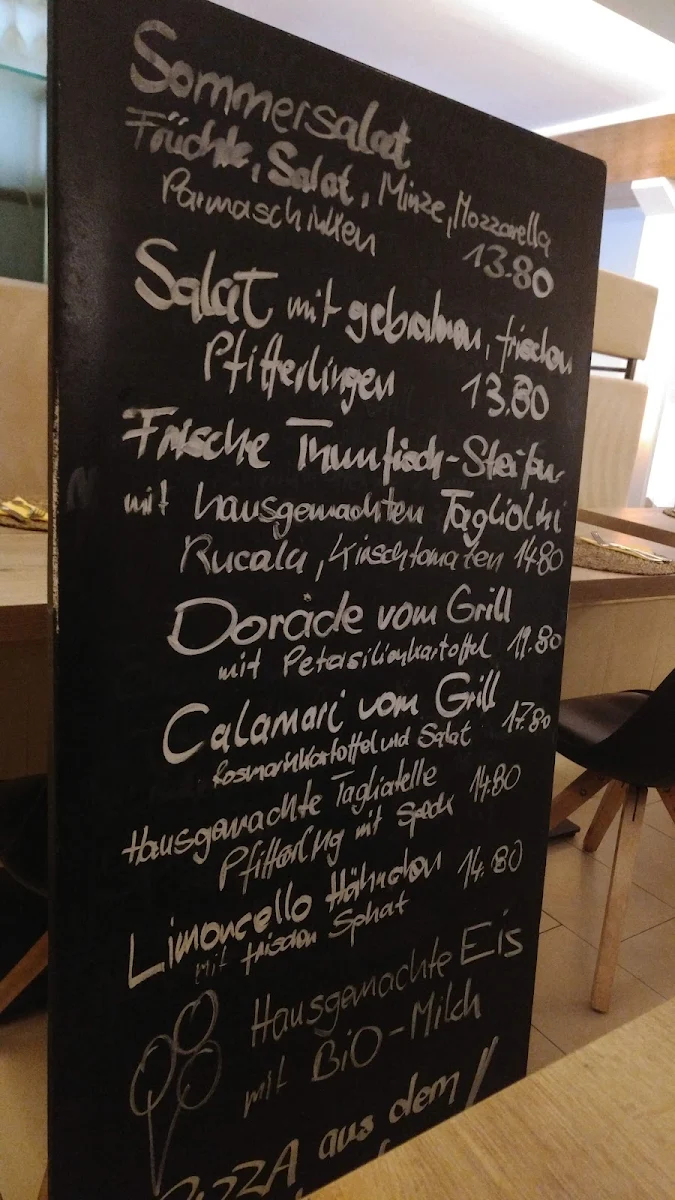 Sommersalat
Früchte, Salat, Minze, Mozzarella
Parmaschinken 13.80
Salat mit gebratenen, frischen
Pfifferlingen 13.80
Frische Thunfisch-Streifen
mit hausgemachten Tagliolini
Rucala, Kirschtomaten 14.80
Doräde vom Grill
mit Petersilienkartoffel 19.80
Calamari vom Grill
Rosmarinkartoffel und Salat 17.80
Hausgemachte Tagliatelle
Pfifferling mit Speck 14.80
Limoncello Hähnchen 14.80
mit frischen Spinat
Hausgemachte Eis
mit BiO-Milch
PIZZA aus dem